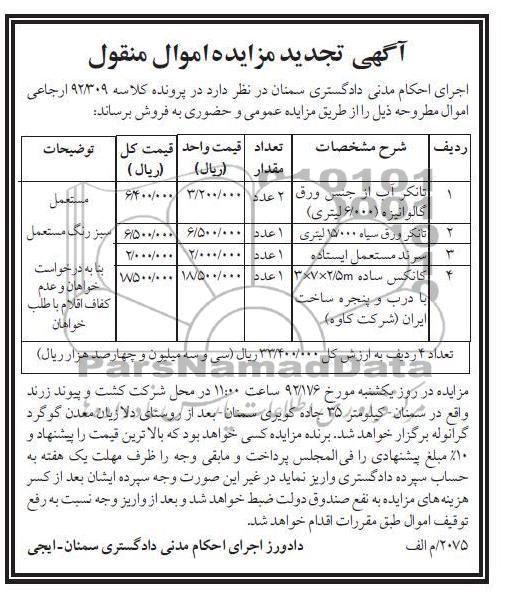 آگهی تجدید مزایده اموال منقول
اجرای احکام مدنی دادگستری سمنان در نظر دارد در پرونده کلاسه ۹۲/۳۰۹ ارجاعی
اموال مطروحه ذیل را از طریق مزایده عمومی و حضوری به فروش برساند:
ردیف شرح مشخصات تعداد مقدار قیمت واحد (ریال) قیمت کل (ریال) توضیحات
۱ تانکر آب از جنس ورق گالوانیزه (۶/۰۰۰ لیتری) ۲ عدد ۳/۲۰۰/۰۰۰ ۶/۴۰۰/۰۰۰ مستعمل
۲ تانکر ورق سیاه ۱۵/۰۰۰ لیتری ۱ عدد ۶/۵۰۰/۰۰۰ ۶/۵۰۰/۰۰۰ سبز رنگ مستعمل
۳ سرند مستعمل ایستاده ۱ عدد ۲/۰۰۰/۰۰۰ ۲/۰۰۰/۰۰۰
۴ کانکس ساده ۳×۷×۲/۵m با درب و پنجره ساخت ایران (شرکت کاوه) ۱ عدد ۱۸/۵۰۰/۰۰۰ ۱۸/۵۰۰/۰۰۰ بنا به درخواست خواهان و عدم کفاف اقلام با طلب خواهان
تعداد ۴ ردیف به ارزش کل ۳۳/۴۰۰/۰۰۰ ریال (سی و سه میلیون و چهارصد هزار ریال)
ParsNamadData
مزایده در روز یکشنبه مورخ ۹۲/۱۷۶ ساعت ۱۱:۰۰ در محل شرکت کشت و پیوند زرند
واقع در سمنان- کیلومتر ۳۵ جاده کویری سمنان- بعد از روستای دلازیان معدن گوگرد
گرانوله برگزار خواهد شد. برنده مزایده کسی خواهد بود که بالاترین قیمت را پیشنهاد و
۱۰٪ مبلغ پیشنهادی را فی‌المجلس پرداخت و مابقی وجه را ظرف مهلت یک هفته به
حساب سپرده دادگستری واریز نماید در غیر این صورت وجه سپرده ایشان بعد از کسر
هزینه‌های مزایده به نفع صندوق دولت ضبط خواهد شد و بعد از واریز وجه نسبت به رفع
توقیف اموال طبق مقررات اقدام خواهد شد.
۲۰۷۵/م الف دادورز اجرای احکام مدنی دادگستری سمنان- ایجی